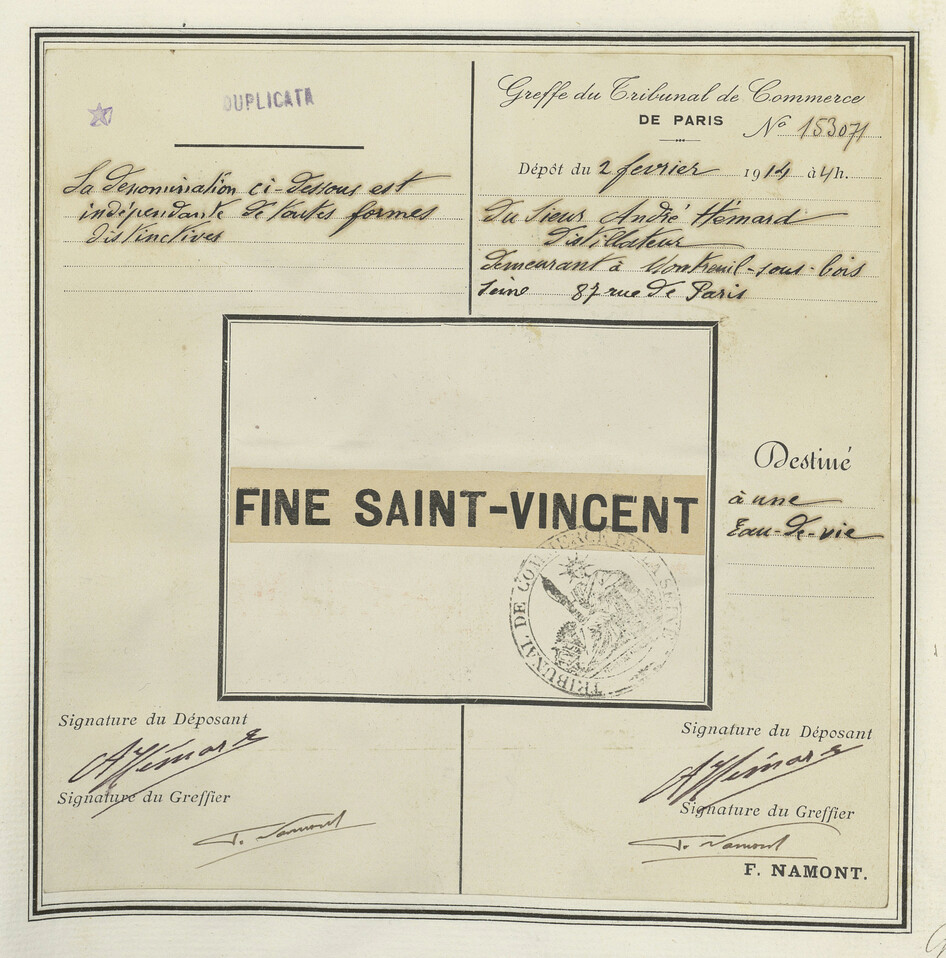 DUPLICATA
La dénomination ci-dessous est
indépendante de toutes formes
distinctives
Greffe du Tribunal de Commerce
DE PARIS
No 153071
Dépôt du 2 fevrier 1914 à 4h.
Du Sieur André Hémard
Distillateur
demeurant à Montreuil-sous-bois
Seine 87 rue de Paris
FINE SAINT-VINCENT
TRIBUNAL DE COMMERCE DE LA SEINE
Destiné
à une
Eau-de-vie
Signature du Déposant
AHémard
Signature du Greffier
F. Namont
Signature du Déposant
AHémard
Signature du Greffier
F. Namont
F. NAMONT.